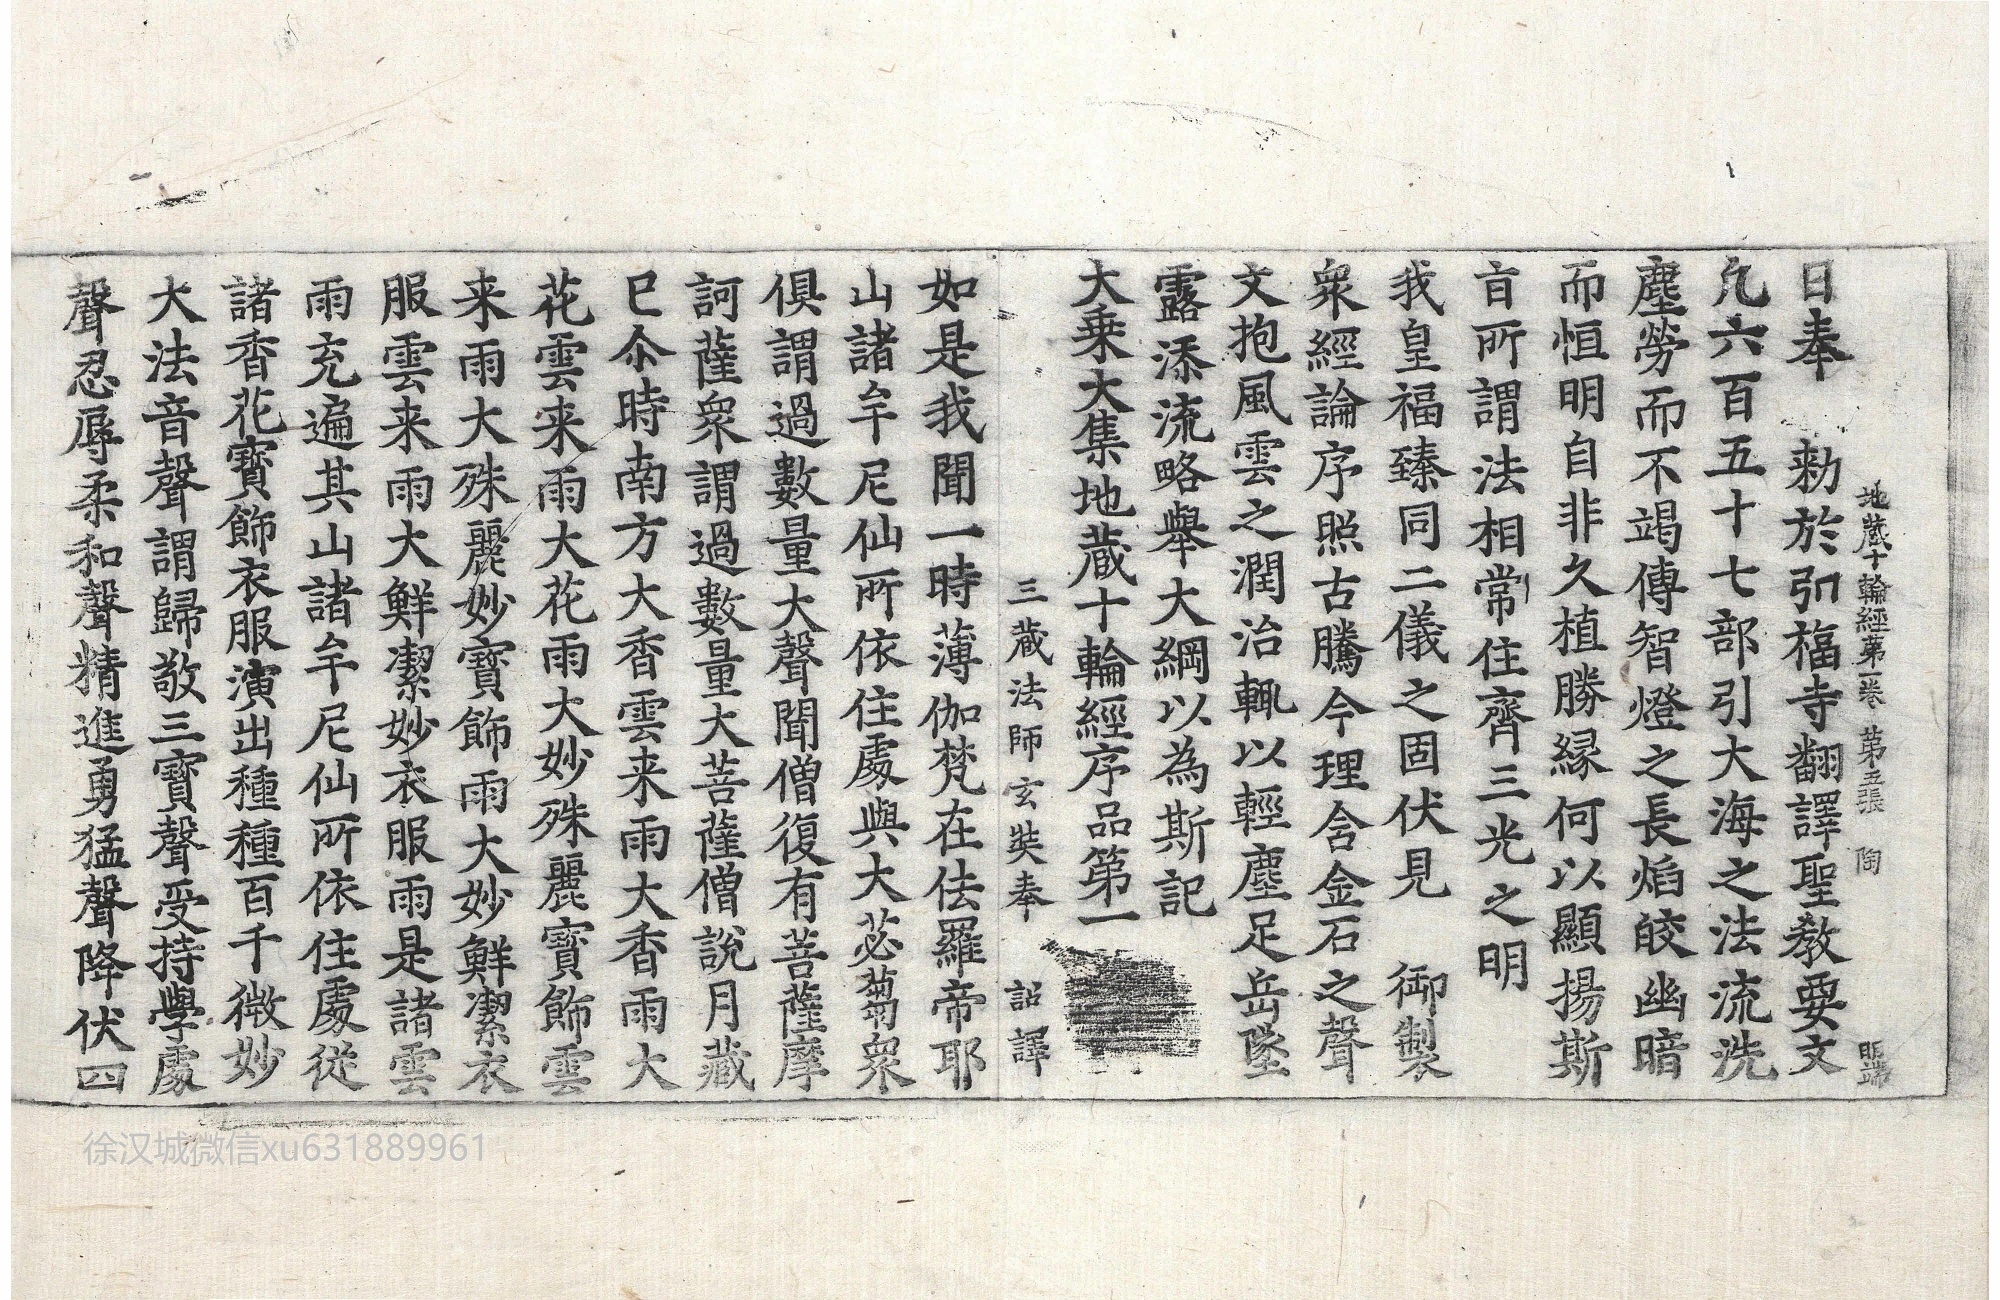 地蔵十輪經第一卷 第五張 陶
日奉 勑於弘福寺翻譯聖教要文
凢六百五十七部引大海之法流洗
塵勞而不竭傳智燈之長焰皎幽暗
而恒明自非久植勝縁何以顯揚斯
㫖所謂法相常住齊三光之明
我皇福臻同二儀之固伏見 御製
衆經論序照古騰今理含金石之聲
文抱風雲之潤治輒以輕塵足岳墜
露添流略舉大綱以為斯記
大乗大集地蔵十輪經序品第一
三蔵法師玄奘奉 詔譯
如是我聞一時薄伽梵在佉羅帝耶
山諸牟尼仙所依住處與大苾蒭衆
俱謂過數量大聲聞僧復有菩薩摩
訶薩衆謂過數量大菩薩僧說月藏
已尒時南方大香雲来雨大香雨大
花雲来雨大花雨大妙殊麗寳飾雲
来雨大殊麗妙寳飾雨大妙鮮潔衣
服雲来雨大鮮潔妙衣服雨是諸雲
雨充遍其山諸牟尼仙所依住處從
諸香花寳飾衣服演出種種百千微妙
大法音聲謂歸敬三寳聲受持學處
聲忍辱柔和聲精進勇猛聲降伏四
徐汉城微信xu631889961